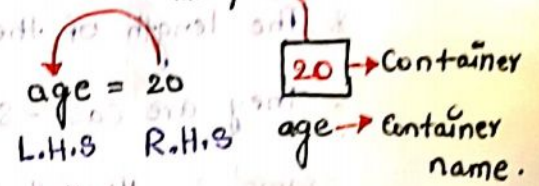 age = 20
L.H.S R.H.S
20 → Container
age → Container
name.